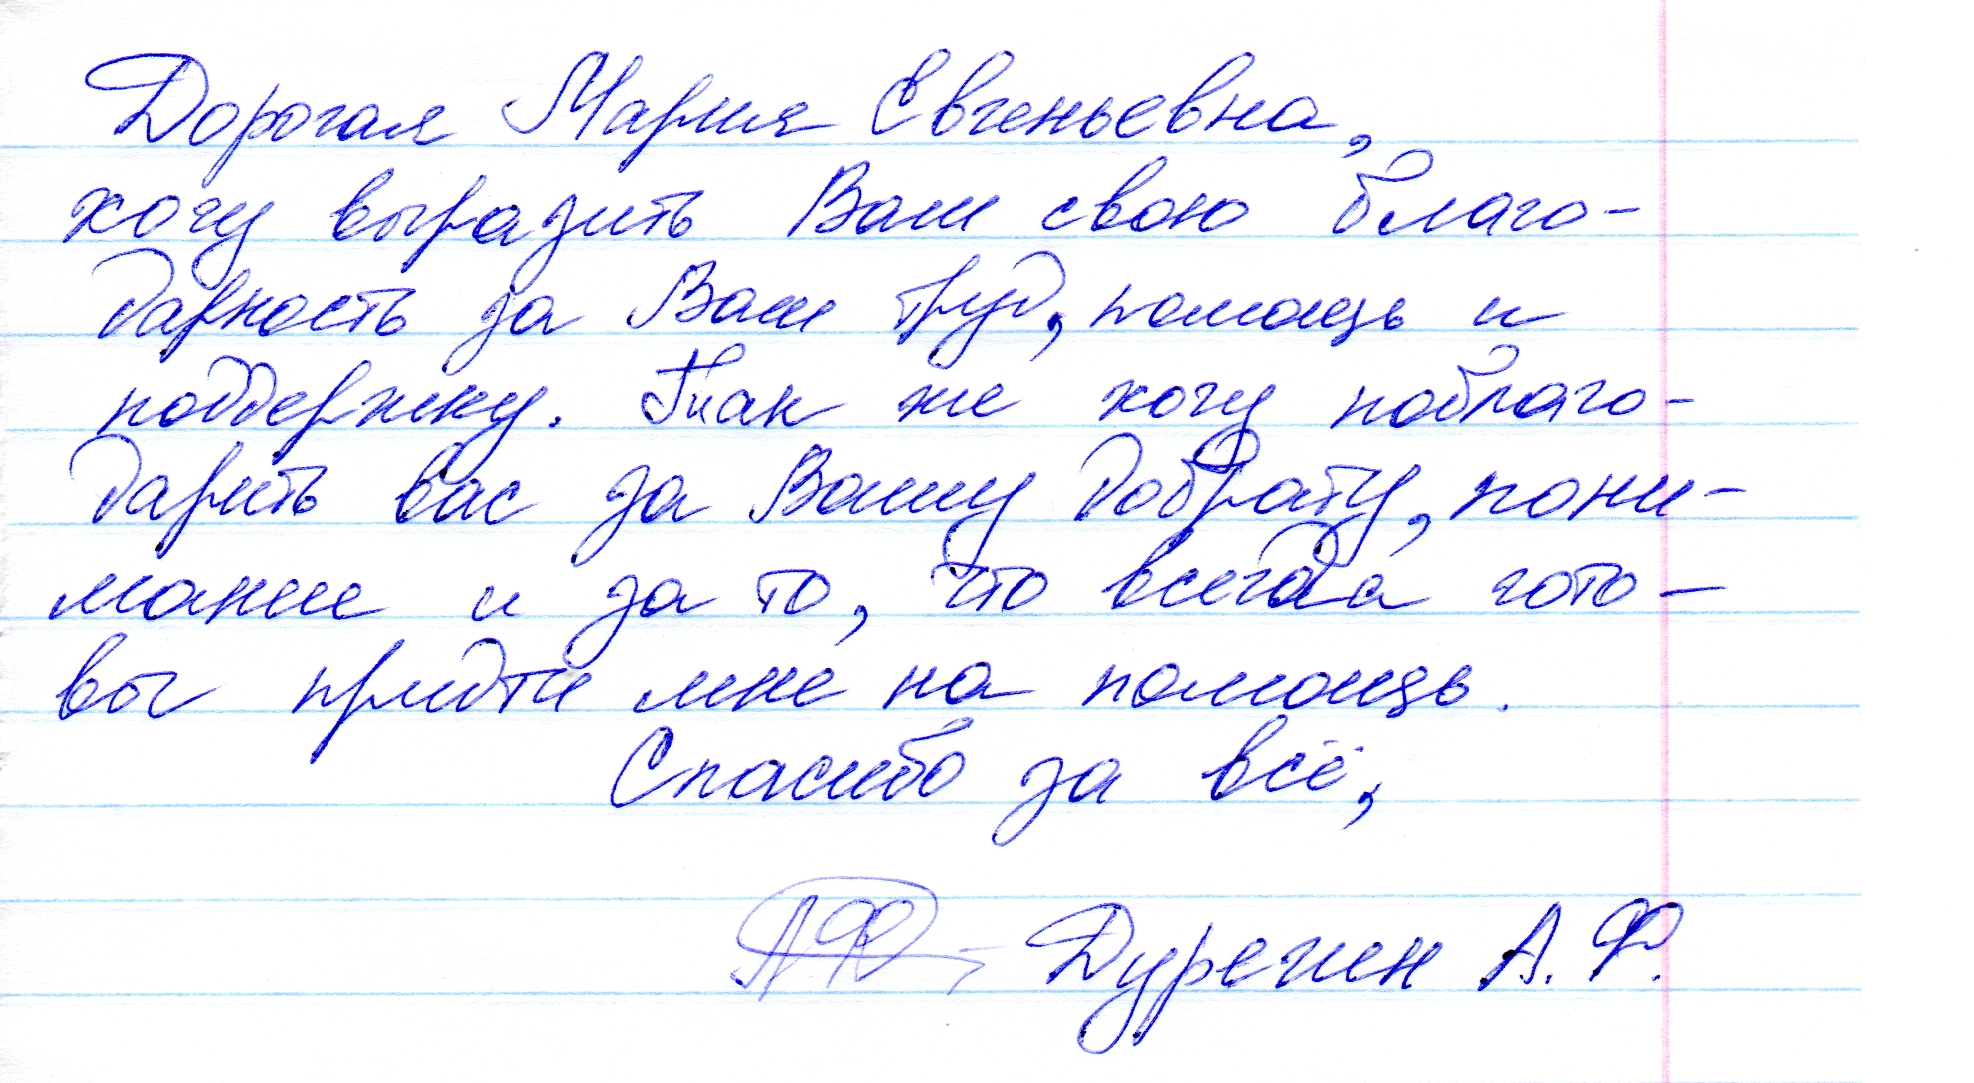 Дорогая Мария Евгеньевна,
хочу выразить Вам свою благо-
дарность за Ваш труд, помощь и
поддержку. Так же хочу поблаго-
дарить вас за Вашу доброту, пони-
мание и за то, что всегда гото-
вы придти мне на помощь.
Спасибо за всё,
Дурегин А. Ф.